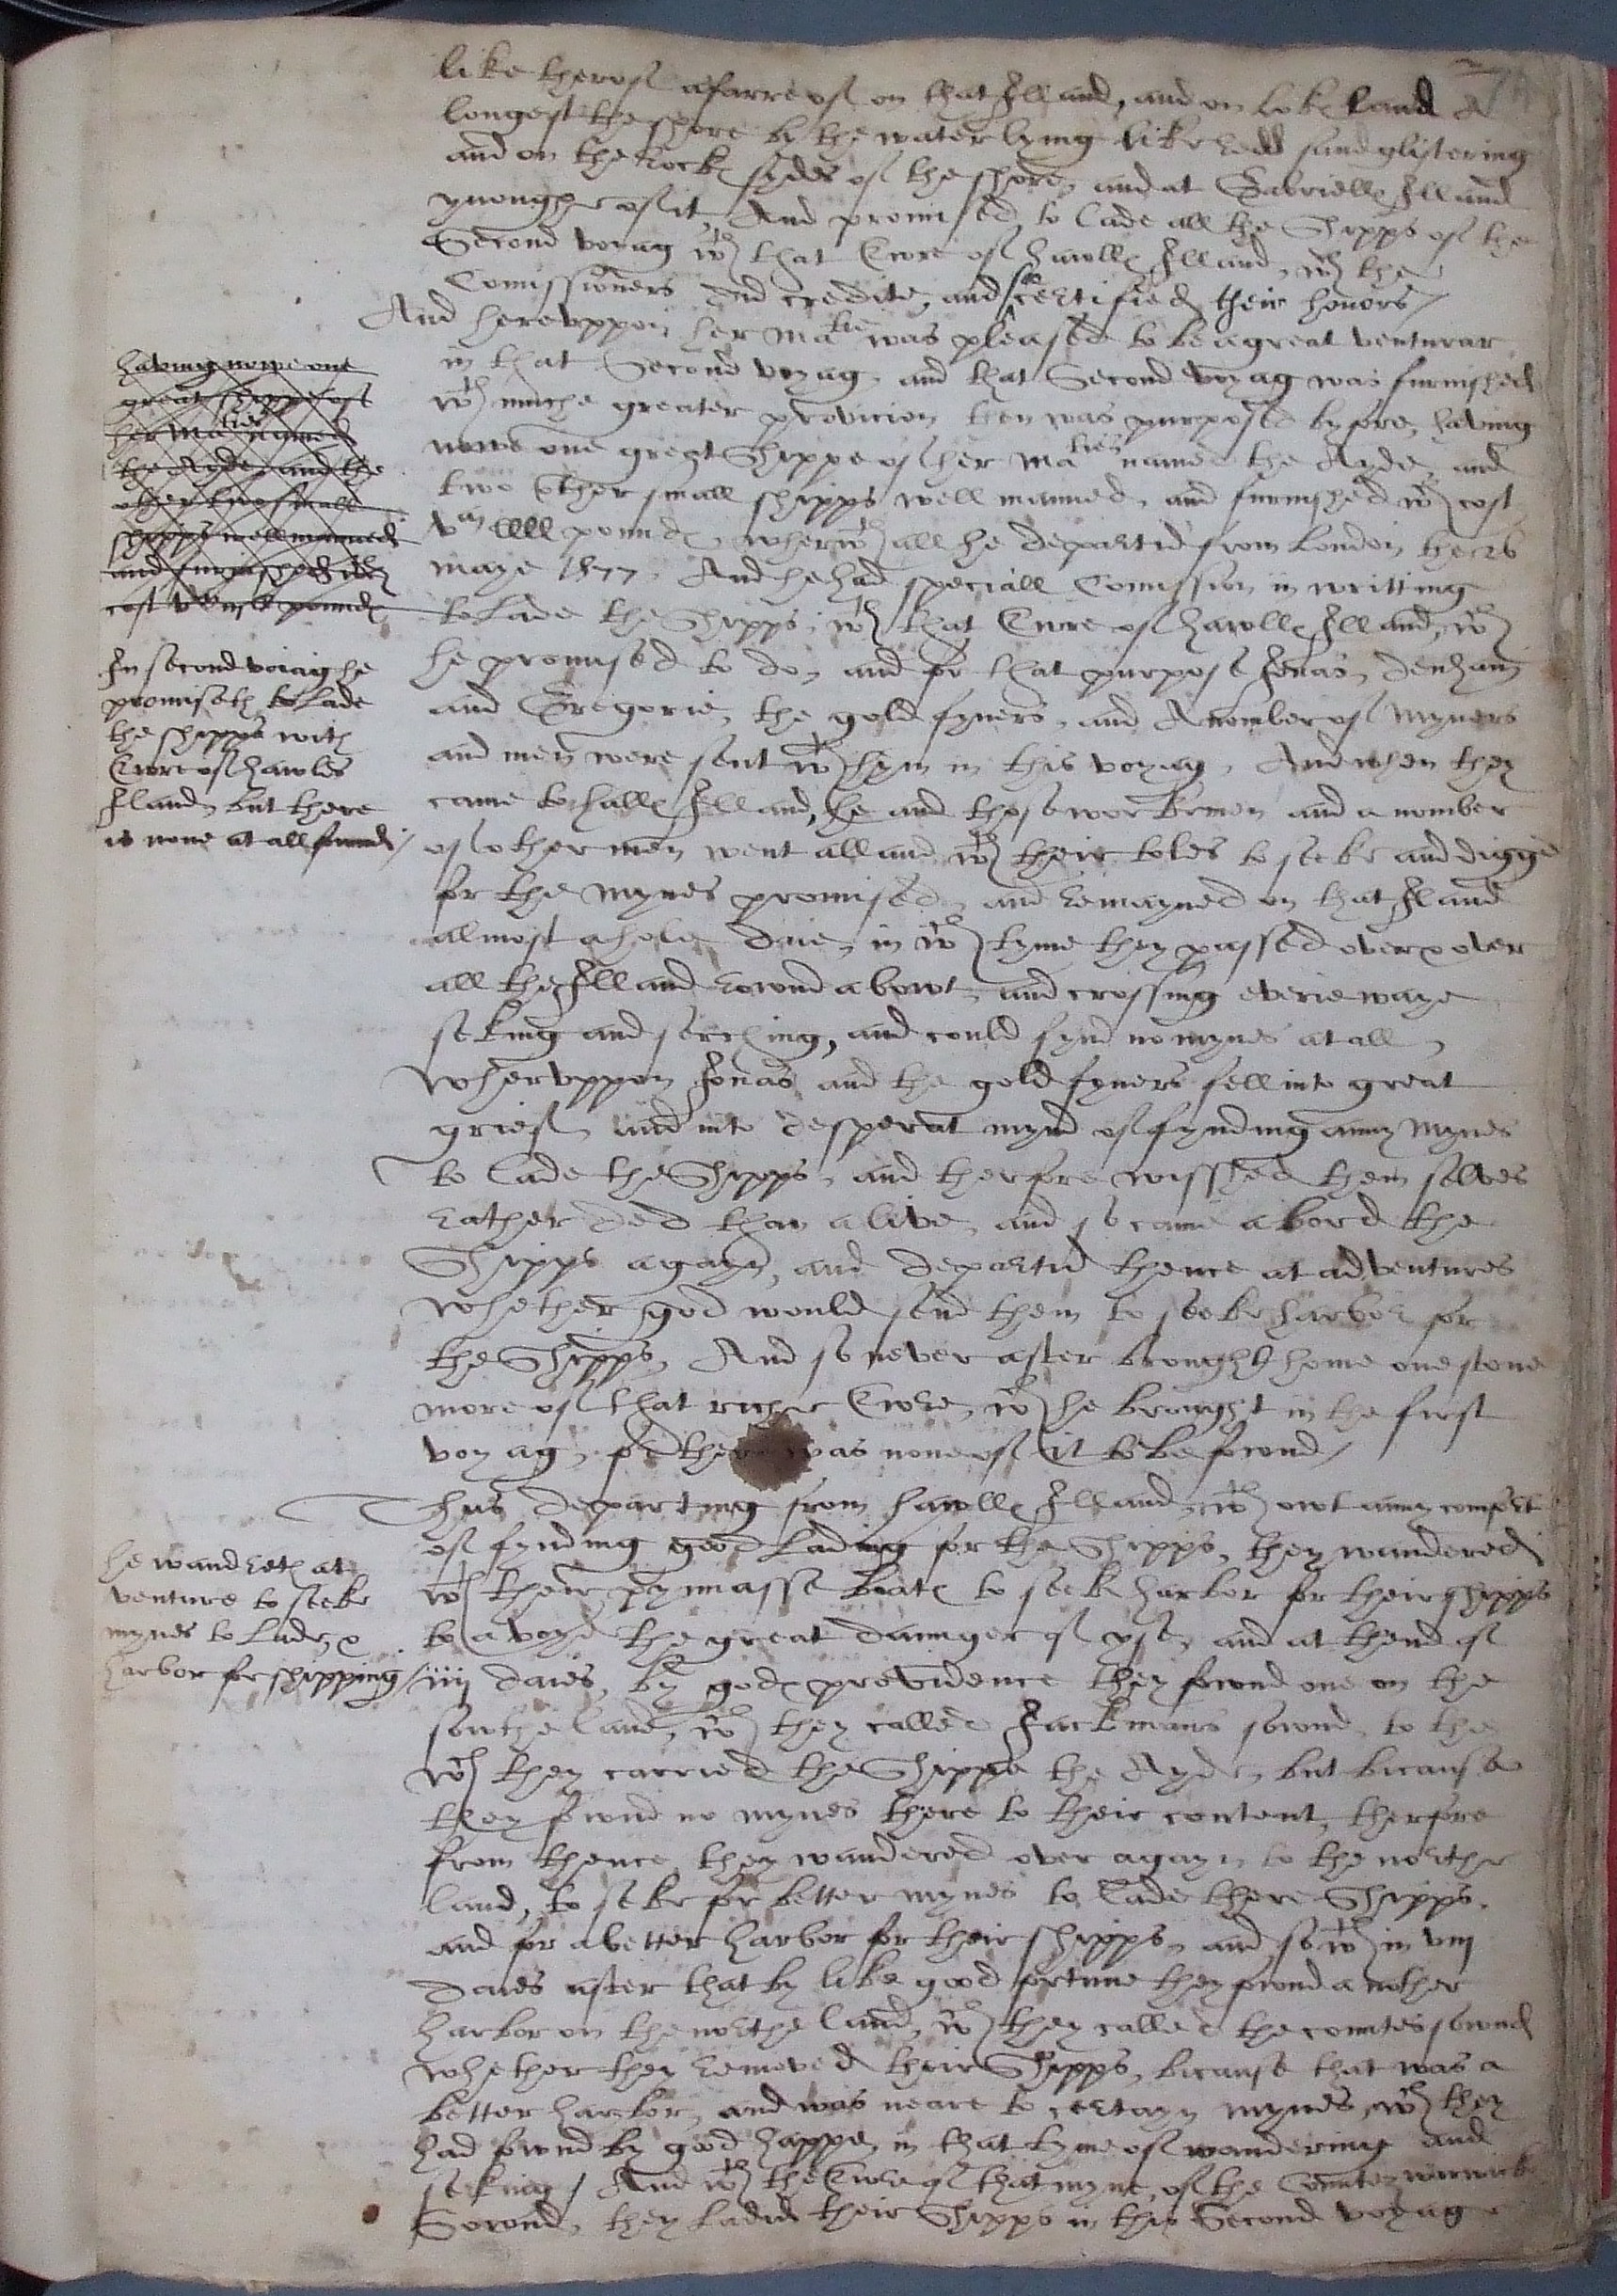 like therof afarre of on that Illand, and on loks land a
longest the shore by the water lyeng like redd sand glistering
and on the rocks sydes of the shore, and at Gabriells Illand
ynoughe of it, And promised to lade all the Shipps of the
Second voyag wth that Ewre of hawlls Illand, wch the
Comissioners did credite, and so certified their honors /
And herevppon her Matie was pleased to be a great venturar
in that Second voyag, and that Second voyag was furnished
wth muche greater provicion then was purposed byfore, having
nowe one great Shippe of her Maties named the Ayde, and
two other small shipps well manned, and furnished wth cost
pounds, wherwth all he departid from London the 26
maye 1577. And he had speciall Comission in writting
to lade the Shipps, wth that Ewre of hawlls Illand, wch
he promised to do, and for that purpose Jonas, denham
and Gregorie, the gold fyners, and A nomber of Myners
and men were sent wth hym in this voyag, And when they
came to halls Illand, he and those workemen and a nomber
of other men went alland wth their toles to seeke and digge
for the mynes promised, and remayned on that Iland
almost a hole daie, in wch tyme they passed over & over
all the Illand rownd abowt, and crossing everie waye
seking and serching, and could fynd no mynes at all,
Whervppon Jonas and the gold fyners fell into great
grief, and into desperat mynd of fynding anny Mynes
to lade the Shipps, and therfore wisshed them selves
rather ded than alive, and so came abord the
Shipps agayn, and departid thence at adventures
whether god would send them to seeke harbor for
the Shipps, And so never after brought home one stone
more of that riche Ewre, wch he brought in the first
voyag, for there was none of it to be fownd /
Thus departing from hawlls Illand, wth owt anny comfort
of fynding good Lading for the Shipps, they wandered
wth their pynnasse boats to seek harbor for their shipps
to avoyd the great daunger of yse, and at thend of
iiij daies, by gods providence they fownd one on the
sowthe land, wch they called Jackmans sownd, to the
wch they carried the Shippe the Ayde, but bicause
they fownd no mynes there to their content, therfore
from thence they wandered over agayn to the northe
land, to seke for better mynes to lade there Shipps,
and for a better harbor for their shipps, and so wth in viij
daies after that by like good fortune they fownd a nother
harbor on the northe land, wch they called the comtes sownd
whether they removed their Shipps, bicause that was a
better harbor, and was neare to certayn mynes, wch they
had fownd by good happe, in that tyme of wandering and
seking / And wth the Ewre of that myne, of the Comtes warwick
Sownd, they ladid their Shipps in this Second voyage
having nowe one
great shippe of
her Maties named
the Ayde, and the
other two small
shipps well manned
and furnished wth
cost pounds
In second voiag he
promiseth to lade
the shipps with
Ewre of hawles
Iland, but there
is none at all found /
he wandreth at
venture to seeke
mynes to lade, &
harbor for shipping /